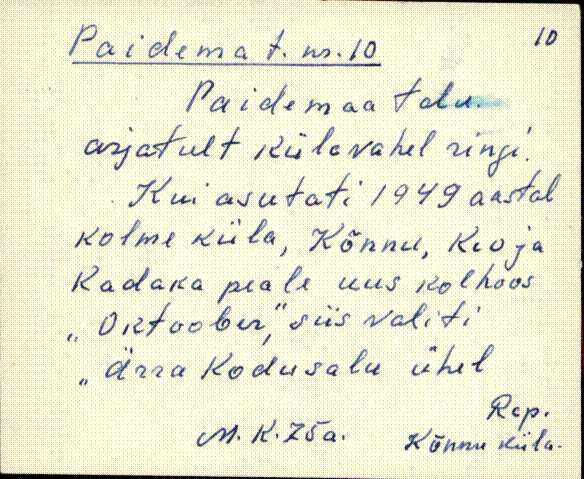 10
Paidema t. nr. 10
Paidemaa talu.
asjatult külavahel ringi.
Kui asutati 1949 aastal
kolme küla, Kõnnu, Kio ja
Kadaka peale uus kolhoos
„Oktoober," siis valiti
„ära Kodusalu ühel
Rap.
M. K. 75a. Kõnnu küla.